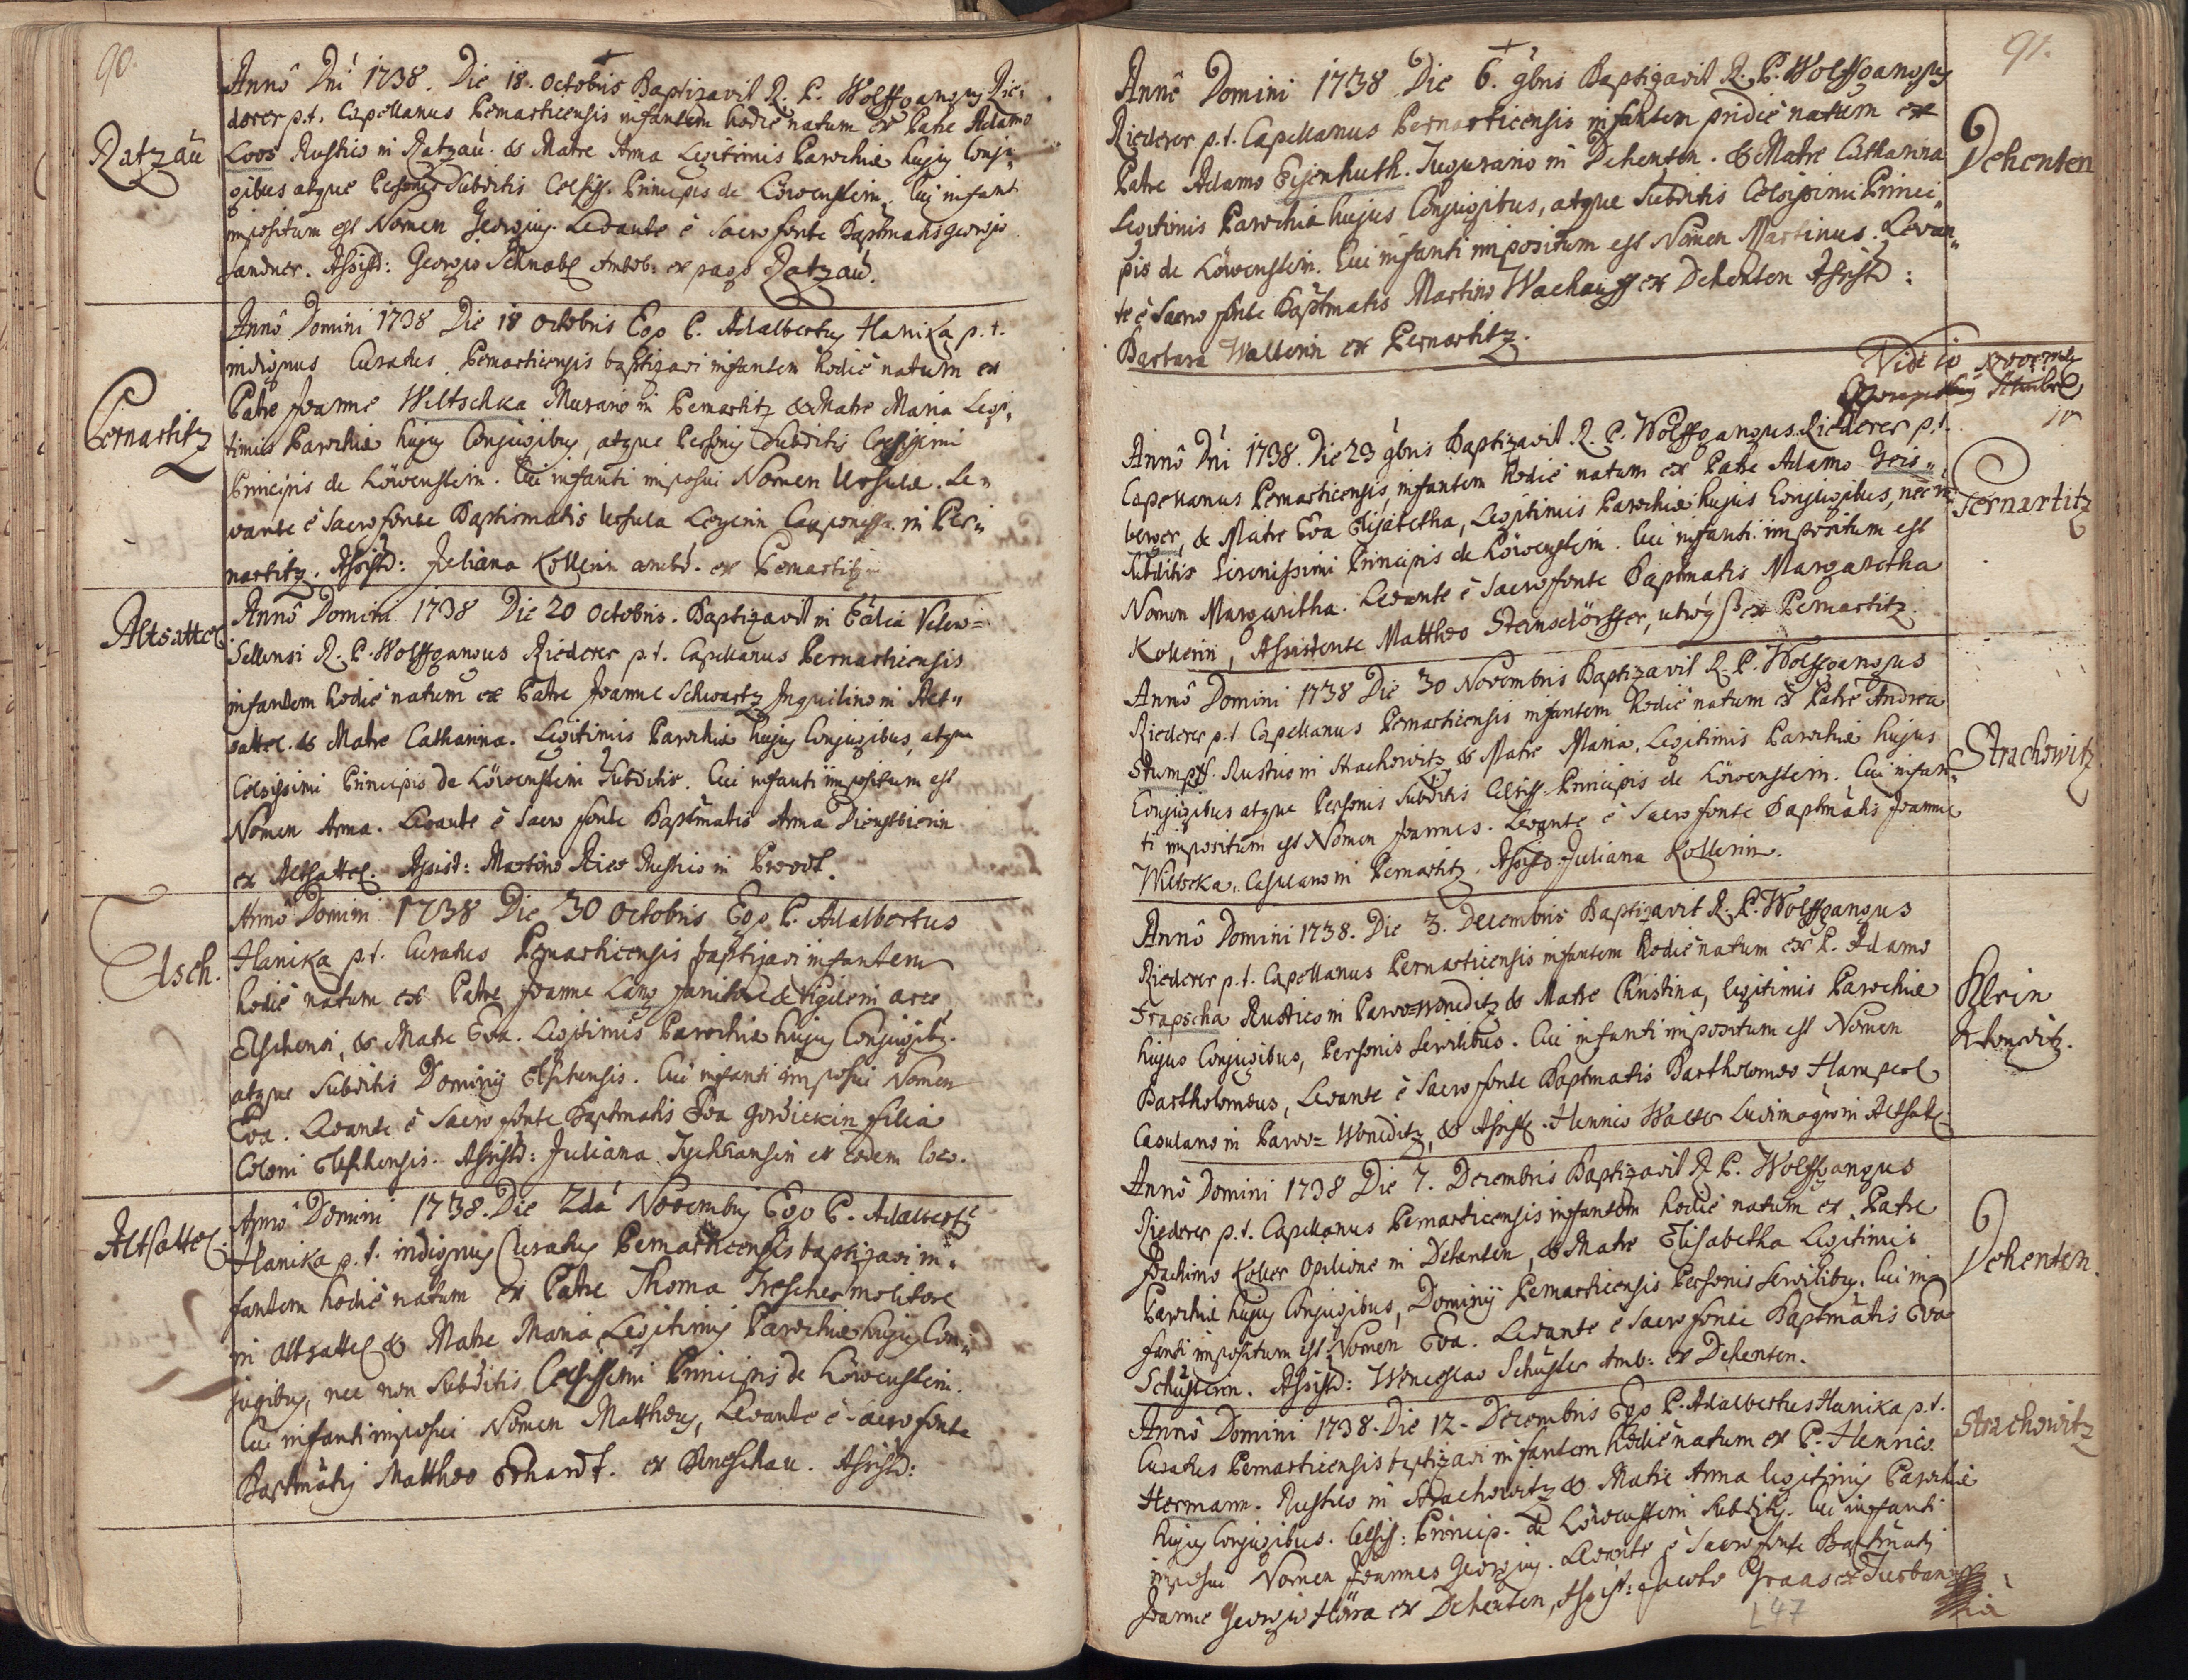 90.
Ratzau
Annô Dni 1738. Die 18. Octobris Baptizavit R. P. Wolffgangus Rie-
derer p.t. Capellanus Pernarticensis infantem hodiè natum ex Patre Adamo
Loos Rustico in Ratzau. & Matre Anna Legitimis Parochiæ hujus Conju-
gibus atque Personis Subditis Celsiss. Principis de Löwenstein. Cui infanti
impositum est Nomen Georgius. Levante è Sacro fonte Baptmatis Georgio
Sandner. Assistd: Georgio Schnabl Ambob: ex pago Ratzau.
Pernartitz
Annô Domini 1738 Die 18 Octobris Ego P. Adalbertus Hanika p.t.
indignus Curatus Pernarticensis baptizavi infantem hodiè natum ex
Patre Joanne Weltschka Murario in Pernartitz & Matre Maria Legi-
timis Parochiæ hujus Conjugibus, atque Personis Subditis Celsissimi
Principis de Löwenstein. Cui infanti imposui Nomen Ursula. Le-
vante è Sacro fonte Baptismatis Ursula Legerin in Per-
nartitz. Assistd: Juliana Kollerin ambob. ex Pernartitz.
Altsattel
Annô Domini 1738 Die 20 Octobris. Baptizavit in Ecclia
Sellensi R. P. Wolffgangus Riederer p.t. Capellanus Pernarticensis
infantem hodiè natum ex Patre Joanne Schwartz Inquilino in Alt-
sattel. & Matre Catharina. Legitimis Parochiæ hujus Conjugibus, atque
Celsissimi Principis de Löwenstein Subditis. Cui infanti impositum est
Nomen Anna. Levante è Sacro fonte Baptmatis Anna Dienstbierin
ex Altsattel. Assist: Martino Rustico in
Elsch.
Annô Domini 1738 Die 30 Octobris Ego P. Adalbertus
Hanika p.t. Curatus Pernarticensis baptizavi infantem
hodiè natum ex Patre Joanne Lang Janitore & Vigile in arce
Elschensi, & Matre Eva. Legitimis Parochiæ hujus Conjugibus
atque Subditis Dominij Elschensis. Cui infanti imposui Nomen
Eva. Levante è Sacro fonte Baptmatis Eva Gordickin filia
Coloni Elschensis. Assistd: Juliana ex eodem loco.
Altsattel
Annô Domini 1738. Die 2dâ Novembris Ego P. Adalbertus
Hanika p.t. indignus Curatus Pernarticensis baptizavi in-
fantem hodiè natum ex Patre Thoma Trescher molitore
in Altsattel & Matre Maria Legitimis Parochiæ hujus Con-
jugibus, nec non Subditis Celsissimi Principis de Löwenstein.
Cui infanti imposui Nomen Mattheus, Levante è Sacro fonte
Baptmatis Mattheo Erhardt. ex Assistd:
91.
Dehenten
Annô Domini 1738 Die 6. 9bris Baptizavit R. P. Wolffgangus
Riederer p.t. Capellanus Pernarticensis infantem pridiè natum ex
Patre Adamo Eysenhuth. Tugurario in Dehenten. & Matre Catharina
Legitimis Parochiæ hujus Conjugibus, atque Subditis Celsissimi Princi-
pis de Löwenstein. Cui infanti impositum est Nomen Martinus. Levan-
te è Sacro fonte Baptmatis Martino Wachauff ex Dehenten Assistd:
Barbara Wallerin ex Pernartitz.
Vide 10 Novemb
Pernartitz
Annô Dni 1738. Die 23 9bris Baptizavit R. P. Wolffgangus Riederer p.t.
Capellanus Pernarticensis, infantem hodiè natum ex Patre Adamo Geis-
berger, & Matre Eva Elisabetha, Legitimis Parochiæ hujus Conjugibus, nec n.
Subditis Serenissimi Principis de Löwenstein. Cui infanti impositum est
Nomen Margaritha. Levante è Sacro fonte Baptmatis Margaretha
Kollerin, Assistente Mattheo Steinsdörffer, utrisq ex Pernartitz.
Strachowitz
Annô Domini 1738 Die 30 Novembris Baptizavit R. P. Wolffgangus
Riederer p.t Capellanus Pernarticensis infantem hodiè natum ex Patre Andrea
Stumpff. Rustico in Strachowitz & Matre Maria. Legitimis Parochiæ hujus
Conjugibus atque Personis Subditis Celsiss. Principis de Löwenstein. Cui infan-
ti impositum est Nomen Joannes. Levante è Sacro fonte Baptmatis Joanne
Wiltscka. Casulano in Pernartitz. Assistd: Juliana Kollerin.
Klein
Wonditz.
Annô Domini 1738. Die 3. Decembris Baptizavit R. P. Wolffgangus
Riederer p.t. Capellanus Pernarticensis infantem hodiè natum ex P. Adamo
Trapscha Rustico in Parvo-Woneditz & Matre Christina, legitimis Parochiæ
hujus Conjugibus, Personis Servilibus. Cui infanti impositum est Nomen
Bartholomæus, Levante è Sacro fonte Baptmatis Bartholomæo Hamperl
Casulano in Parvo-Woneditz, & Assist. Henrico Walter Ludimagro in Altsatl.
Dehenten.
Annô Domini 1738 Die 7. Decembris Baptizavit R. P. Wolffgangus
Riederer p.t. Capellanus Pernarticensis infantem hodiè natum ex Patre
Joachimo Koller Opilione in Dehenten, & Matre Elisabetha Legitimis
Parochiæ hujus Conjugibus, Dominij Pernarticensis Personis Servilibus. Cui in-
fanti impositum est Nomen Eva. Levante è Sacro fonte Baptmatis Eva
Schusterin. Assistd: Wenceslao Schuster Amb: ex Dehenten.
Strachowitz
Annô Domini 1738. Die 12. Decembris Ego P. Adalbertus Hanika p.t.
Curatus Pernarticensis baptizavi infantem hodiè natum ex P. Henrico
Hermann. Rustico in Strachowitz & Matre Anna legitimis Parochiæ
hujus Conjugibus. Celsiss: Princip. de Löwenstein Subditis. Cui infanti
imposui Nomen Joannes Georgius. Levante è Sacro fonte Baptmatis
Joanne Georgio Höra ex Dehenten, Assist: Jacobo
47